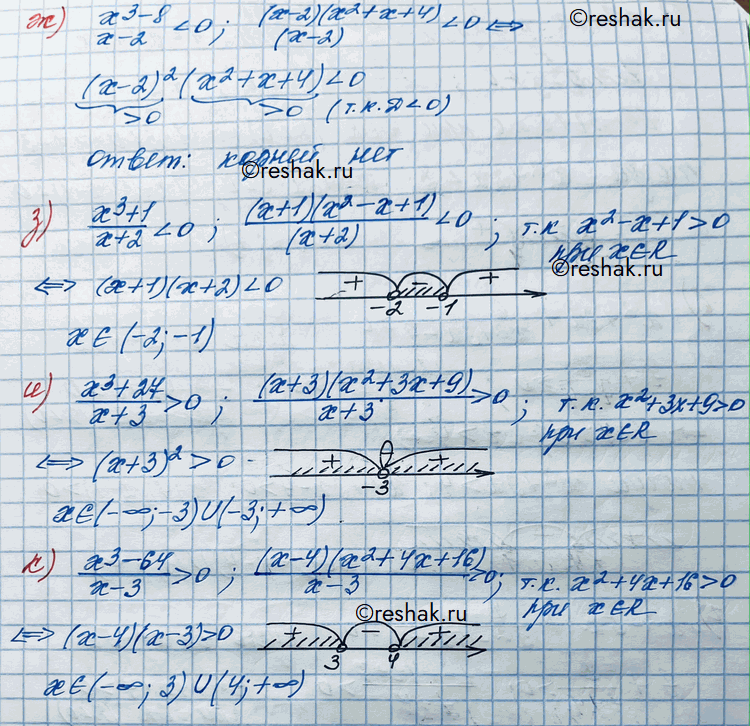 ©reshak.ru
ж) x³-8/x-2 <0 ; (x-2)(x²+x+4)/(x-2) <0 ⇔
(x-2)² (x²+x+4)<0
>0 >0 (т.к. D<0)
ответ: корней нет
©reshak.ru
з) x³+1/x+2 <0 ; (x+1)(x²-x+1)/(x+2) <0 ; т.к x²-x+1>0
при x∈R
©reshak.ru
⇔ (x+1)(x+2)<0 + - +
-2 -1
x∈(-2;-1)
и) x³+27/x+3 >0 ; (x+3)(x²+3x+9)/x+3 >0 ; т.к. x²+3x+9>0
при x∈R
⇔ (x+3)²>0 + +
-3
x∈(-∞;-3)∪(-3;+∞)
к) x³-64/x-3 >0 ; (x-4)(x²+4x+16)/x-3 >0 ; т.к. x²+4x+16>0
при x∈R
©reshak.ru
⇔ (x-4)(x-3)>0 + - +
3 4
x∈(-∞;3)∪(4;+∞)